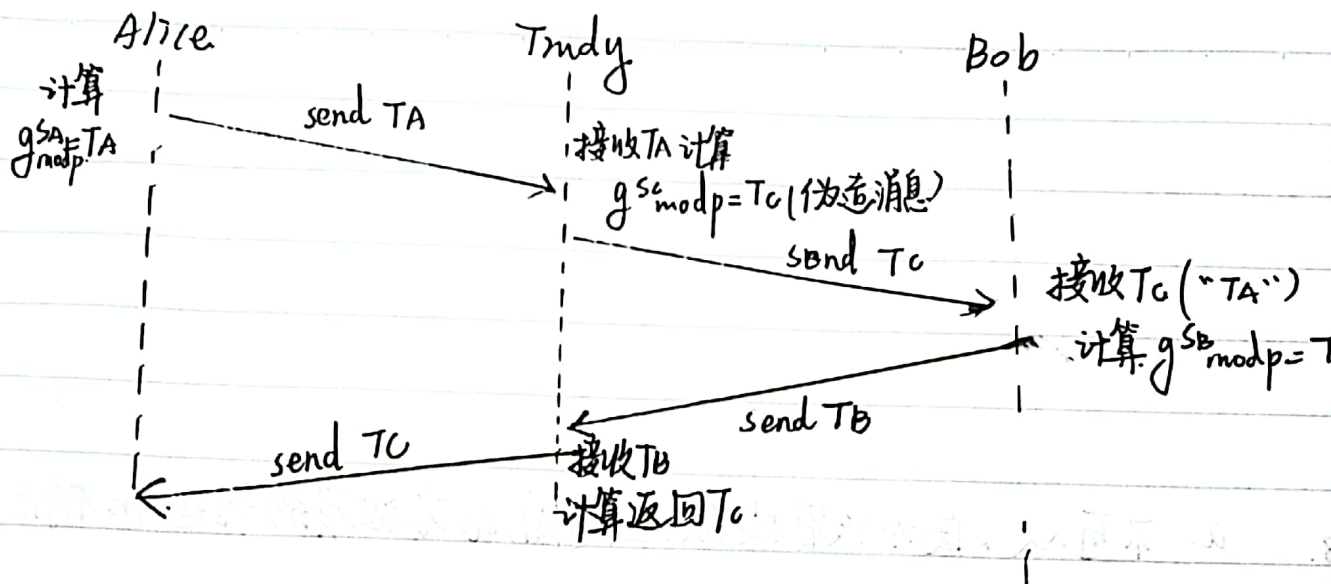 Alice
Trudy
Bob
计算
g^SA mod p = TA
send TA
接收TA计算
g^Sc mod p = Tc (伪造消息)
send Tc
接收Tc ("TA")
计算 g^SB mod p = T
send TB
接收TB
send TC
计算返回Tc